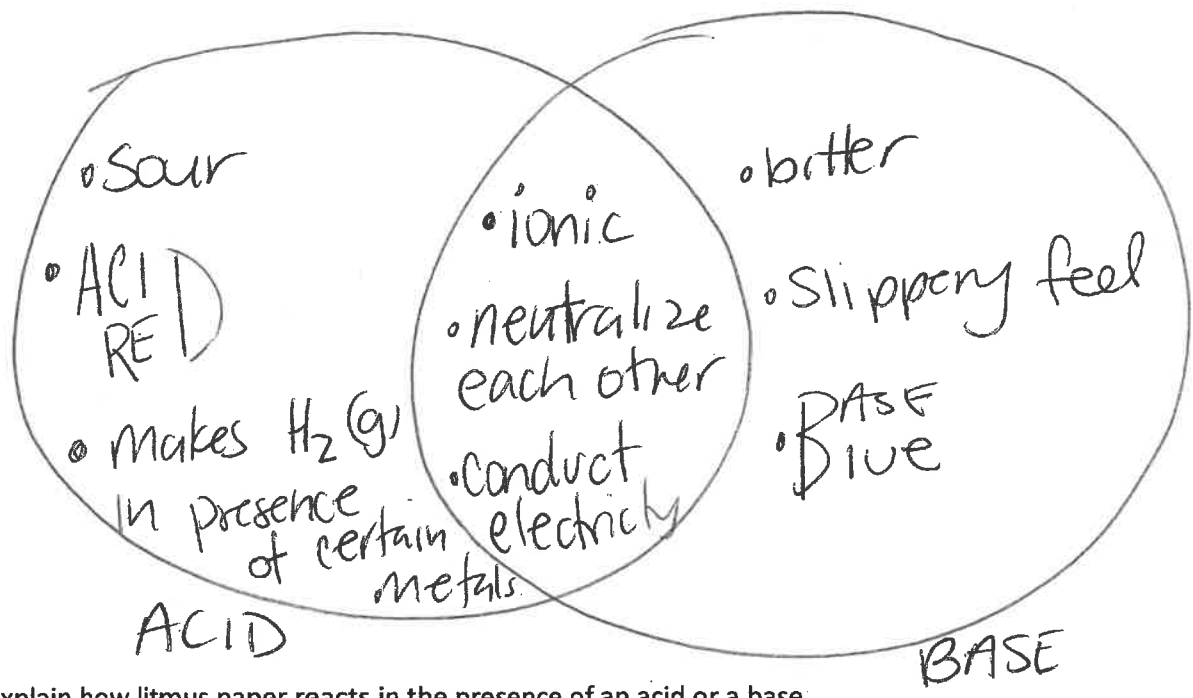 •Sour
• ACI D
RE
• makes H₂(g)
in presence
of certain
metals.
ACID
•ionic
•neutralize
each other
•conduct
electricity
•bitter
•Slippery feel
•BASE
Blue
BASE
xplain how litmus paper reacts in the presence of an acid or a base